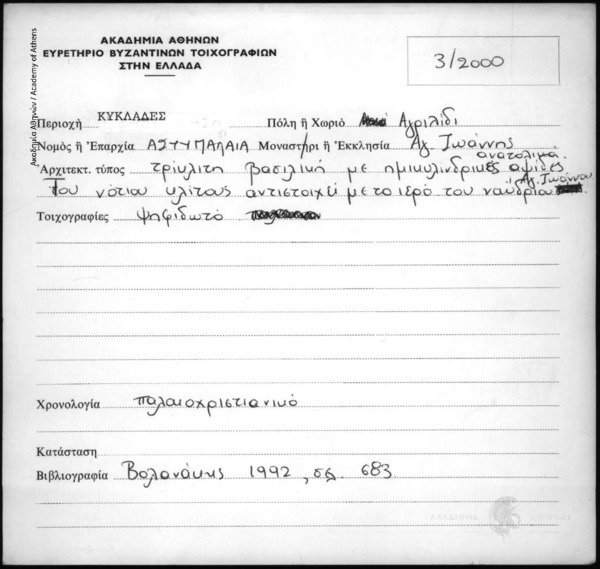 ΑΚΑΔΗΜΙΑ ΑΘΗΝΩΝ
ΕΥΡΕΤΗΡΙΟ ΒΥΖΑΝΤΙΝΩΝ ΤΟΙΧΟΓΡΑΦΙΩΝ
ΣΤΗΝ ΕΛΛΑΔΑ
3/2000
Ακαδημία Αθηνών / Academy of Athens
Περιοχὴ ΚΥΚΛΑΔΕΣ Πόλη ἤ Χωριὸ Αγριλίδι
Νομὸς ἤ Ἐπαρχία ΑΣΤΥΠΑΛΑΙΑ Μοναστήρι ἤ Ἐκκλησία Αγ. Ἰωάννης
Ἀρχιτεκτ. τύπος τρίκλιτη βασιλική με ημικυλινδρικές ανατολικά αψίδες.
Του νότιου κλίτους αντιστοιχεί με το ιερό του ναϋδρίου Αγ. Ἰωάννου
Τοιχογραφίες ψηφιδωτό
Χρονολογία παλαιοχριστιανικό
Κατάσταση
Βιβλιογραφία Βολανάκης 1992, σς. 683.